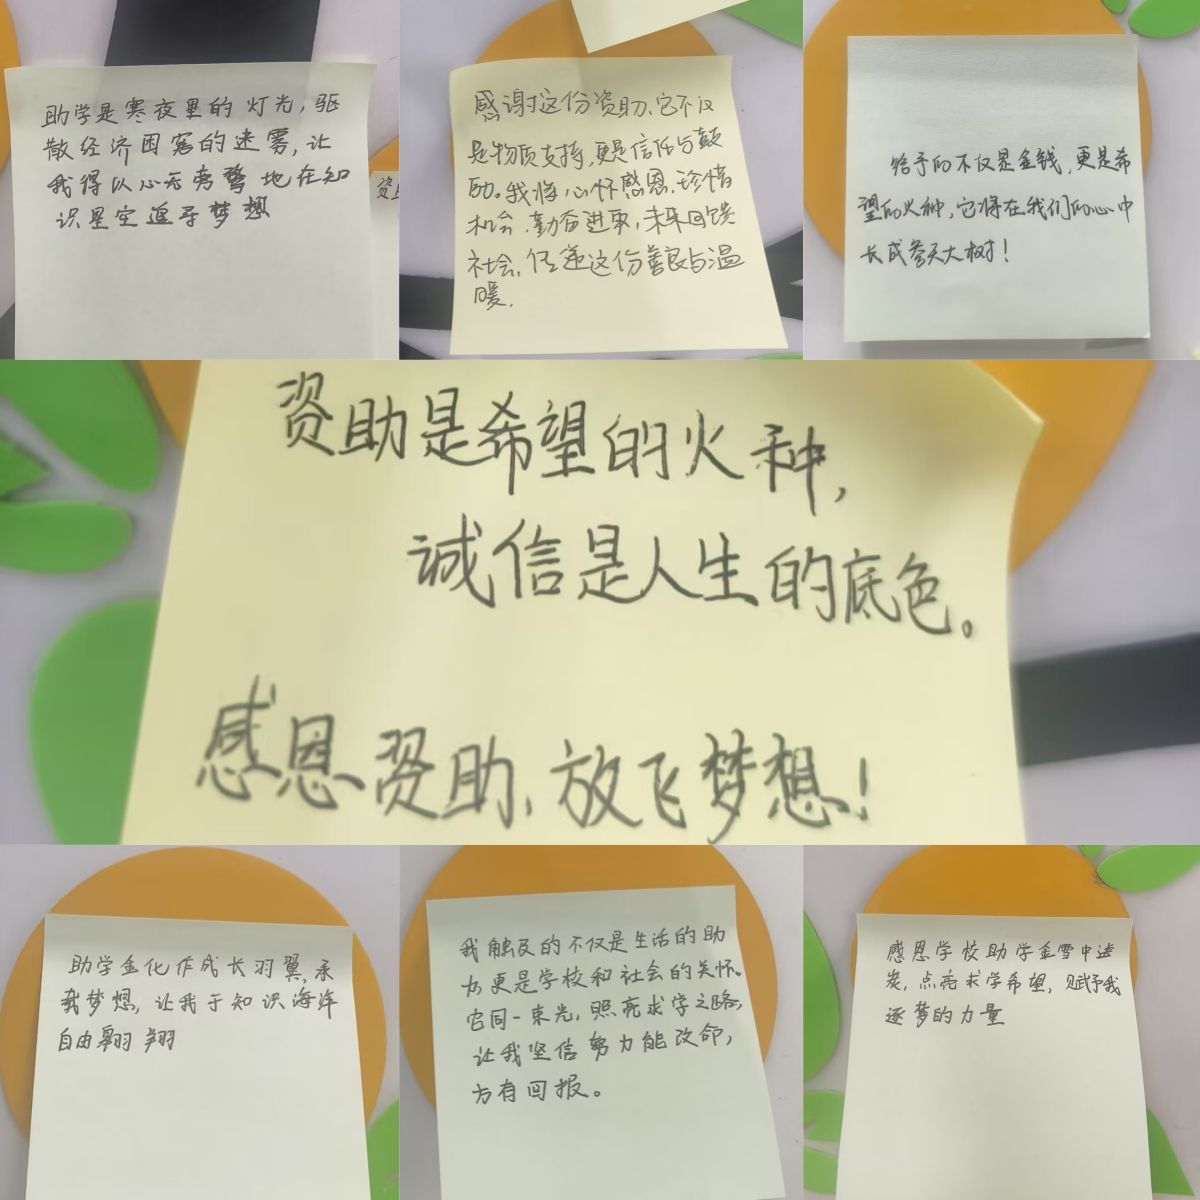 助学是寒夜里的灯光，驱
散经济困窘的迷雾，让
我得以心无旁骛地在知
识星空追寻梦想
资
感谢这份资助、它不仅
是物质支持，更是信任与鼓
励。我将心怀感恩，珍惜
机会、勤奋进取，未来回馈
社会，传递这份善良与温
暖．
给予的不仅是金钱，更是希
望的火种，它将在我们的心中
长成参天大树！
资助是希望的火种，
诚信是人生的底色。
感恩资助、放飞梦想！
助学金化作成长羽翼，承
载梦想，让我于知识海洋
自由翱翔
我触及的不仅是生活的助
力更是学校和社会的关怀。
它同一束光，照亮求学之路，
让我坚信努力能改命，
方有回报。
感恩学校助学金雪中送
炭，点亮求学希望，赋予我
逐梦的力量